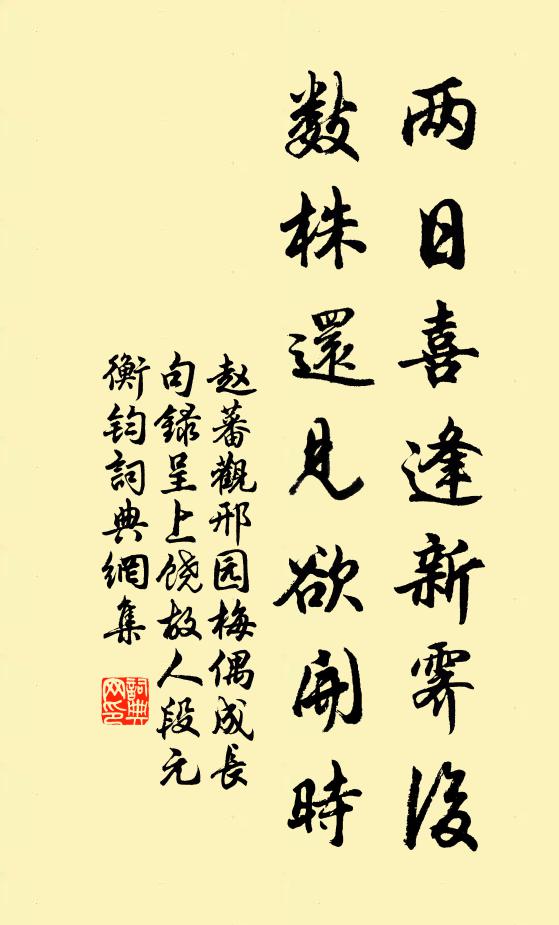 两日喜逢新霁後
数株還见欲開時
赵蕃觀邢园梅偶成長
句録呈上饶故人段元
衡钧詞典網集
詞典网印